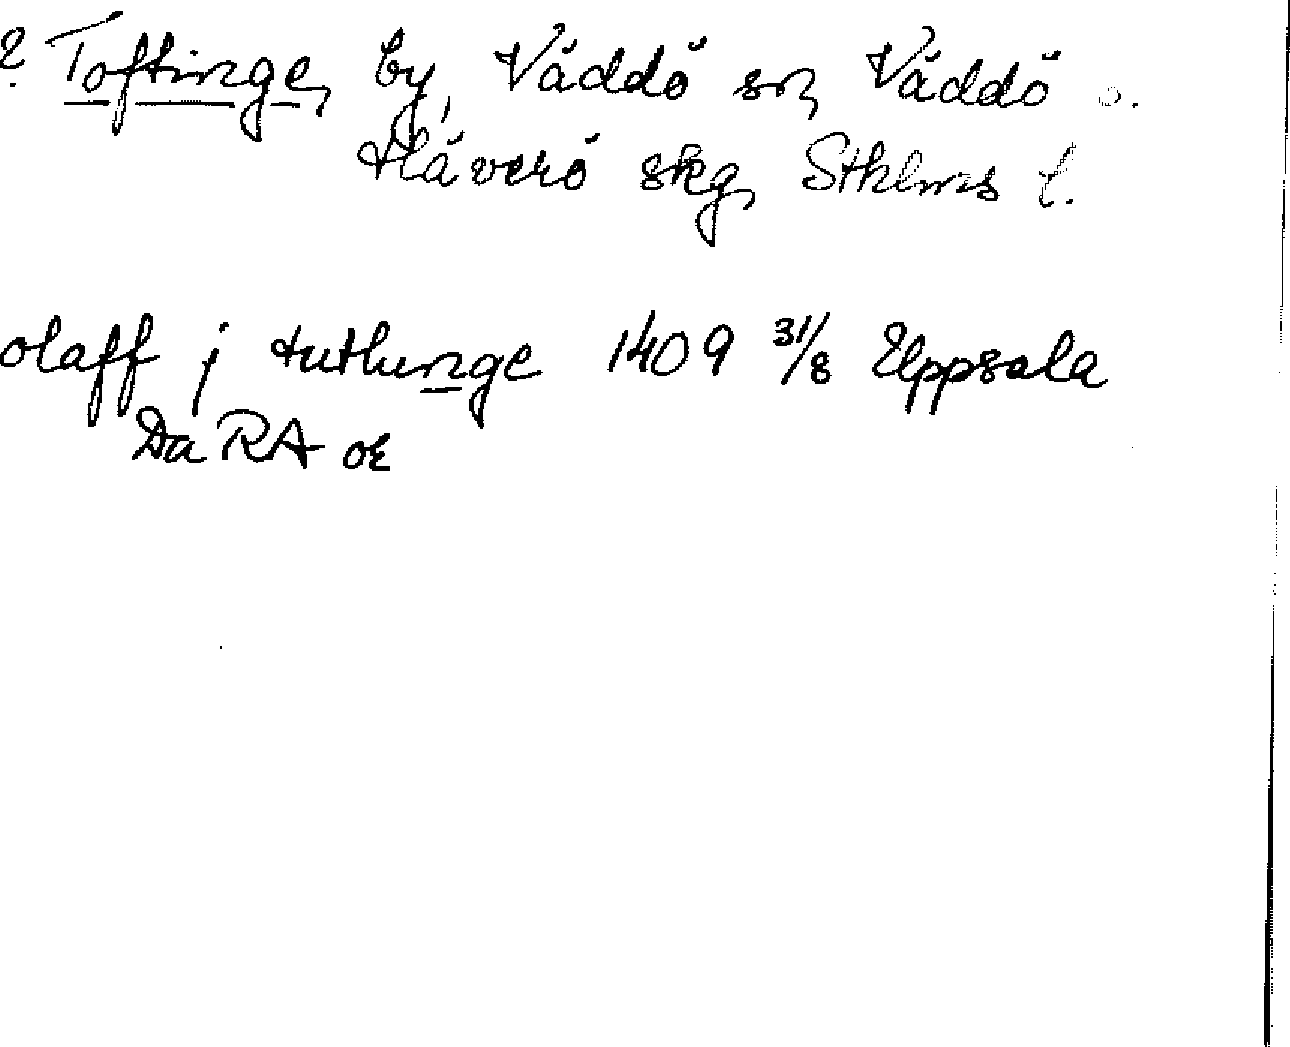 ? Toftinge, by, Väddö sn, Väddö o.
Häverö skg, Sthlms l.
olaff j tutlunge 1409 31/8 Uppsala
Da RA or